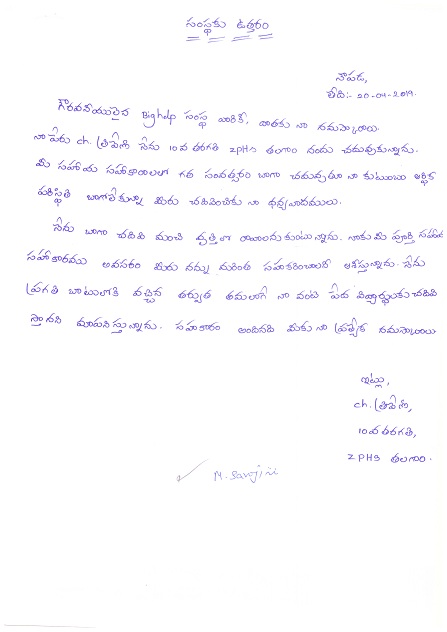 సంస్థకు ఉత్తరం
నౌపడ,
తేది:- 20-04-2019.
గౌరవనీయులైన Bighelp సంస్థ వారికి, దాతకు నా నమస్కారాలు.
నా పేరు ch. త్రివేణి నేను 10వ తరగతి ZPHS తలగాం నందు చదువుకున్నాను.
మీ సహాయ సహకారాలలో గత సంవత్సరం బాగా చదువుతూ నా కుటుంబ ఆర్థిక
పరిస్థితి బాగాలేకున్నా మీరు చదివించుకు నా ధన్యవాదములు.
నేను బాగా చదివి మంచి వృత్తిలో రాణించాలనుకుంటున్నాను. నాకు మీ పూర్తి సహాయ
సహకారము అవసరం మీరు నన్ను మరింత సహకరించాలని ఆశిస్తున్నాను. నేను
ప్రగతి బాటలోకి వచ్చిన తర్వాత తమలాగే నా వంటి పేద విద్యార్థులకు చదివి
స్తానని మాటనిస్తున్నాను. సహకారం అందినది మీకు నా ప్రత్యేక నమస్కారాలు
ఇట్లు,
ch. త్రివేణి,
10వ తరగతి,
ZPHS తలగాం.
M. Sarojini